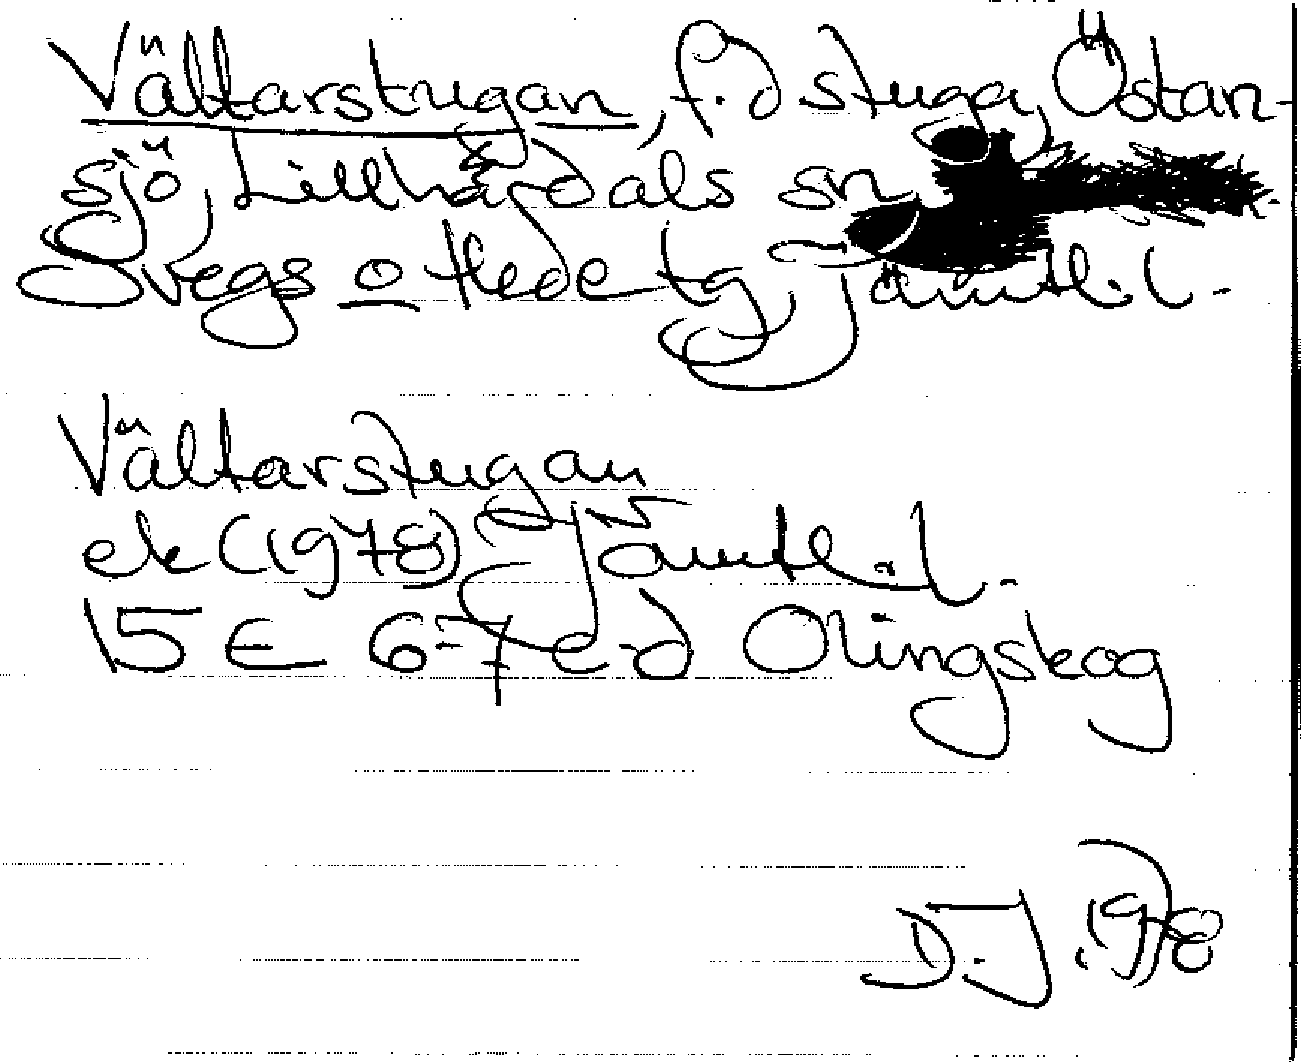 Vältarstugan, f.d stuga, Östan-
sjö, Lillhärdals sn,
Svegs o Hede tg, Jämtl. l.
Vältarstugan
ek (1978) Jämtl. l.
15 E 6-7 e-d Olingskog
D.J. 1978